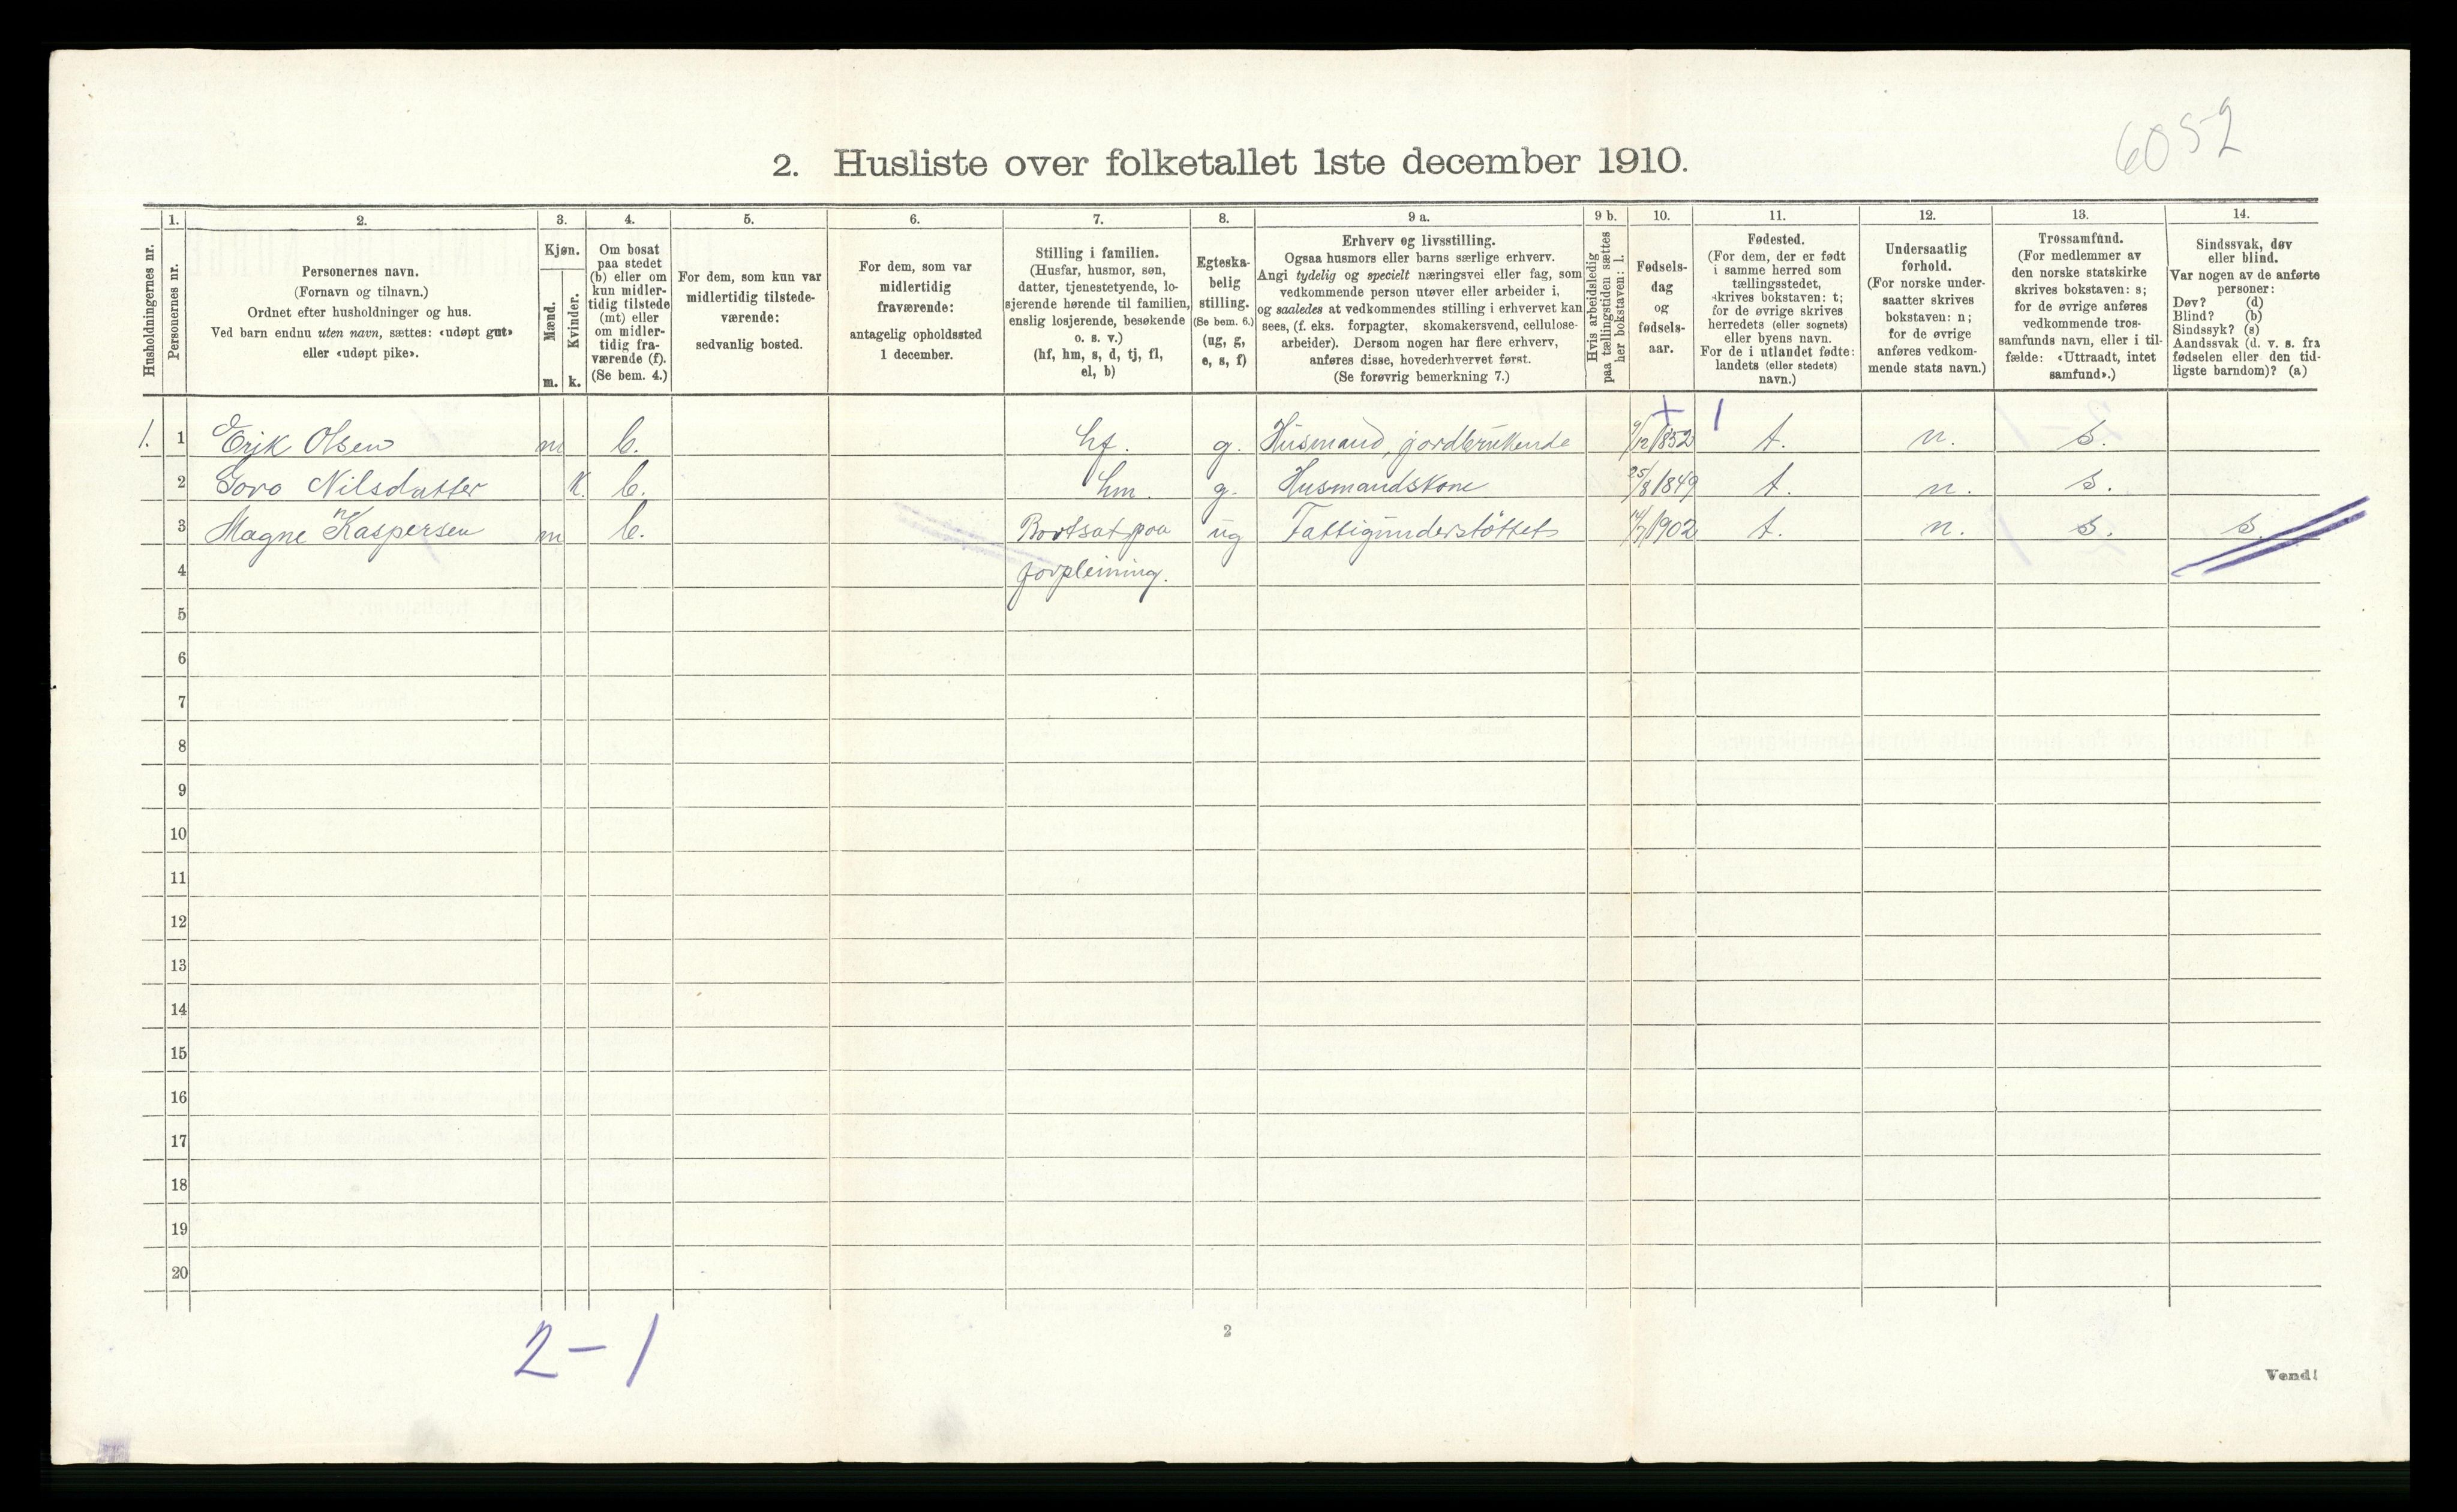 6052
2. Husliste over folketallet 1ste december 1910.
Husholdningernes nr.
1.
Personernes nr.
2.
Personernes navn.
(Fornavn og tilnavn.)
Ordnet efter husholdninger og hus.
Ved barn endnu uten navn, sættes: «udøpt gut»
eller «udøpt pike».
3.
Kjøn.
Mænd.
Kvinder.
m. k.
4.
Om bosat
paa stedet
(b) eller om
kun midler-
tidig tilstede
(mt) eller
om midler-
tidig fra-
værende (f).
(Se bem. 4.)
5.
For dem, som kun var
midlertidig tilstede-
værende:
sedvanlig bosted.
6.
For dem, som var
midlertidig
fraværende:
antagelig opholdssted
1 december.
7.
Stilling i familien.
(Husfar, husmor, søn,
datter, tjenestetyende, lo-
sjerende hørende til familien,
enslig losjerende, besøkende
o. s. v.)
(hf, hm, s, d, tj, fl,
el, b)
8.
Egteska-
belig
stilling.
(Se bem. 6.)
(ug, g,
e, s, f)
9 a.
Erhverv og livsstilling.
Ogsaa husmors eller barns særlige erhverv.
Angi tydelig og specielt næringsvei eller fag, som
vedkommende person utøver eller arbeider i,
og saaledes at vedkommendes stilling i erhvervet kan
sees, (f. eks. forpagter, skomakersvend, cellulose-
arbeider). Dersom nogen har flere erhverv,
anføres disse, hovederhvervet først.
(Se forøvrig bemerkning 7.)
9 b.
Hvis arbeidsledig
paa tællingstiden sættes
her bokstaven: l.
10.
Fødsels-
dag
og
fødsels-
aar.
11.
Fødested.
(For dem, der er født
i samme herred som
tællingsstedet,
skrives bokstaven: t;
for de øvrige skrives
herredets (eller sognets)
eller byens navn.
For de i utlandet fødte:
landets (eller stedets)
navn.)
12.
Undersaatlig
forhold.
(For norske under-
saatter skrives
bokstaven: n;
for de øvrige
anføres vedkom-
mende stats navn.)
13.
Trossamfund.
(For medlemmer av
den norske statskirke
skrives bokstaven: s;
for de øvrige anføres
vedkommende tros-
samfunds navn, eller i til-
fælde: «Uttraadt, intet
samfund».)
14.
Sindssvak, døv
eller blind.
Var nogen av de anførte
personer:
Døv? (d)
Blind? (b)
Sindssyk? (s)
Aandssvak (d. v. s. fra
fødselen eller den tid-
ligste barndom)? (a)
1. 1 Erik Olsen m b. hf. g. Husmand, jordbrukende 9/12 1852 t. n. s.
2 Goro Nilsdatter K. b. hm. g. Husmandskone 25/8 1849 t. n. s.
3 Magne Kaspersen m b. Bortsat paa ug Fattigunderstöttet 14/7 1902 t. n. s. s.
4 forpleining.
5
6
7
8
9
10
11
12
13
14
15
16
17
18
19
20
2-1
2
Vend!